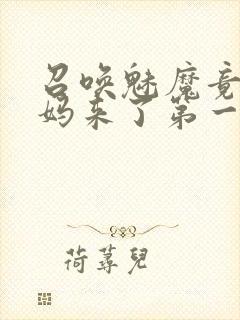 召唤魅魔竟
妈来了第一
荷蕁兒